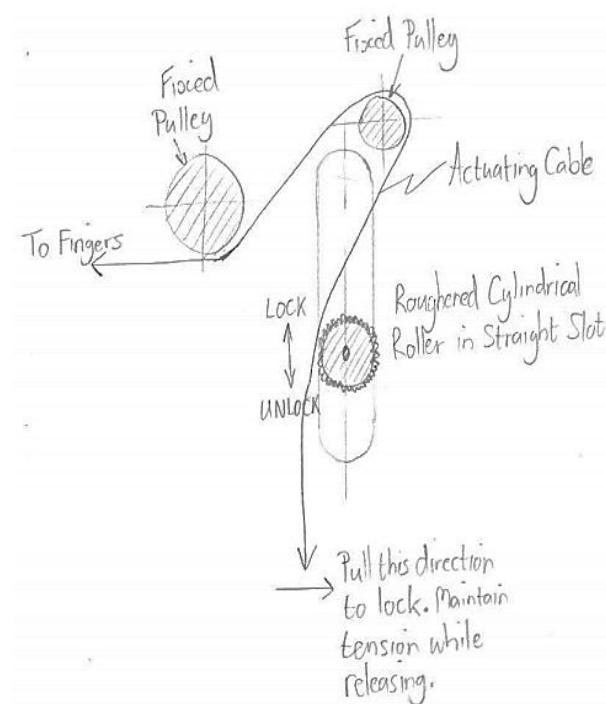 Fixed Pulley
Fixed
Pulley
Actuating Cable
To Fingers
Roughened Cylindrical
Roller in Straight Slot
LOCK
UNLOCK
Pull this direction
to lock. Maintain
tension while
releasing.